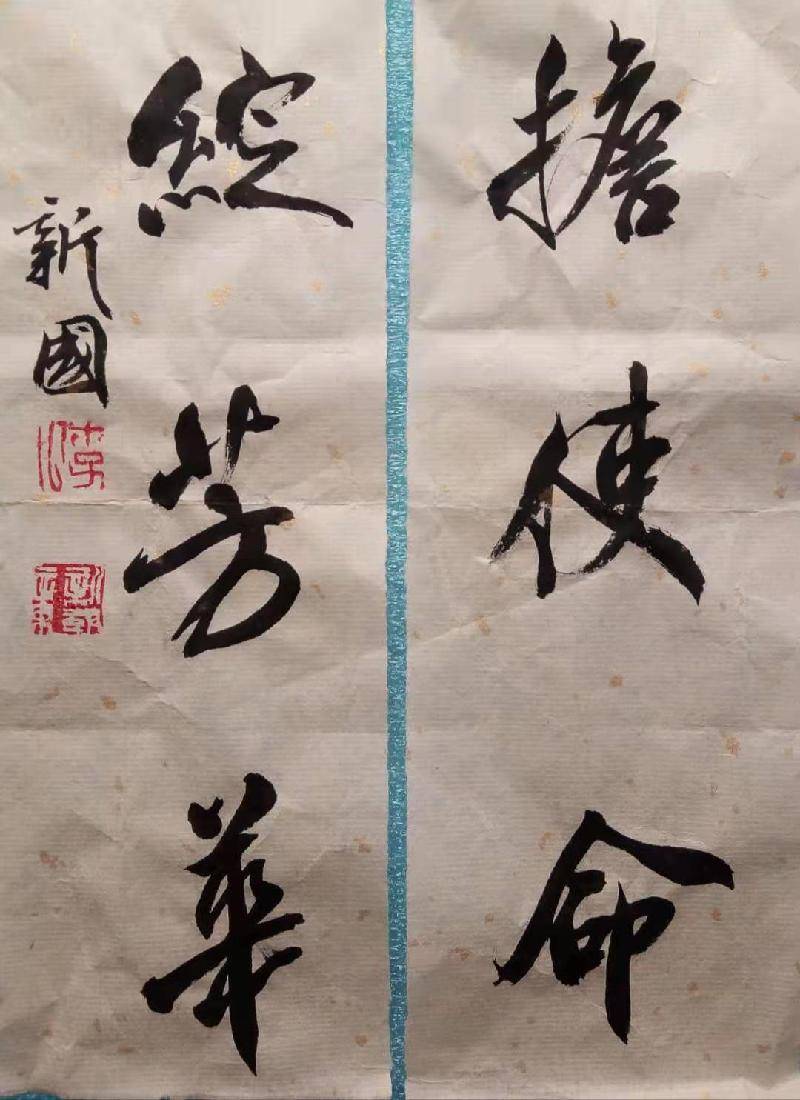 擔使命
綻芳華
新國